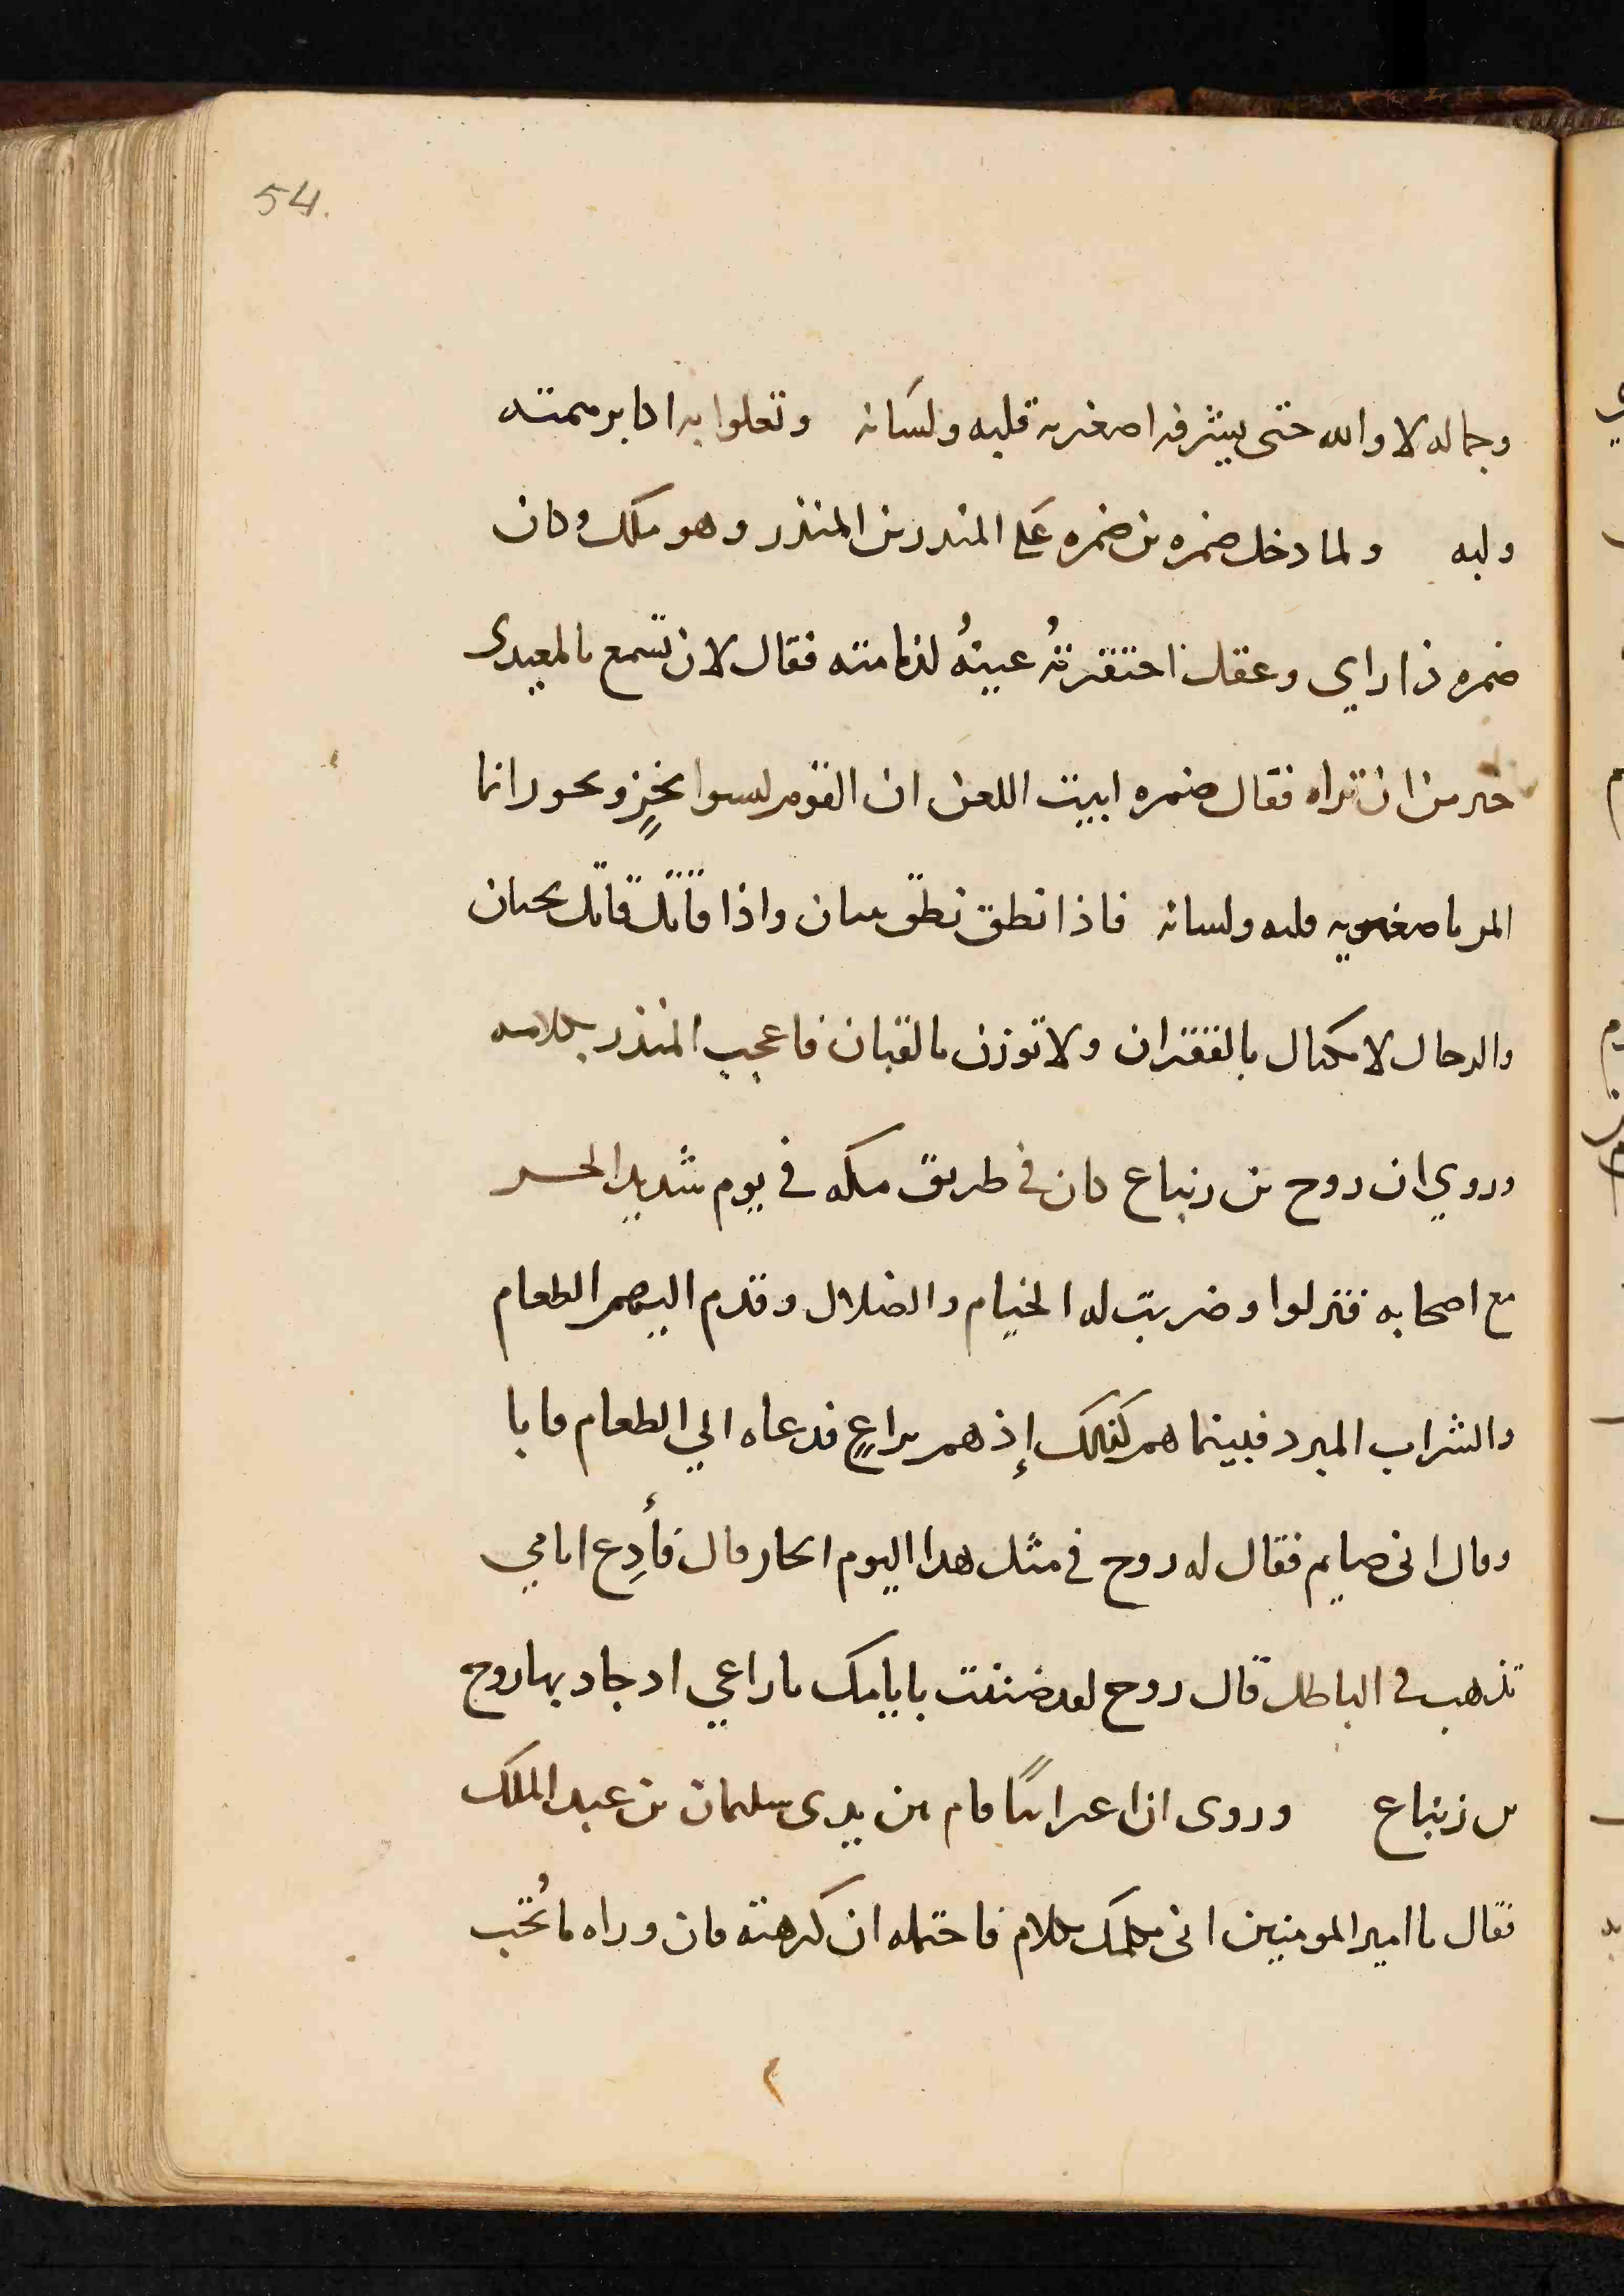 54.
وجماله لا والله حتى يشرفه اصغريه قلبه ولسانه وتعلوا به اكابر همته
ولبه ولما دخل ضمره بن ضمره على المنذر بن المنذر وهو ملك وكان
ضمره ذا راي وعقل احتقرتهُ عينهُ لذمامته فقال لان تسمع بالمعيدى
خير من ان تراه فقال ضمره ابيت اللعن ان القوم ليسوا بجزرٍ انما
المر باصغريه قلبه ولسانه فاذا نطق نطق ببيان واذا قاتل قاتل بجنان
والرجال لا تكتال بالقفزان ولا توزن بالقبان فاعجب المنذر بكلامه
وروي ان روح بن زنباع كان في طريق مكه في يوم شديد الحر
مع اصحابه فنزلوا وضربت له الخيام والضلال وقدم اليهم الطعام
والشراب المبرد فبينما هم كذلك إذ هم براعٍ فدعاه الي الطعام فابا
وقال انى صايم فقال له روح في مثل هذا اليوم الحار قال فأدع ايامي
تذهب في الباطل قال روح لقد ضننت بايامك يا راعي اد جاد بها روح
بن زنباع وروى ان اعرابيًا قام بين يدى سليمان بن عبد الملك
فقال يا امير المومنين انى مكلمك بكلام فاحتمله ان كرهته فان وراه ما تُحب